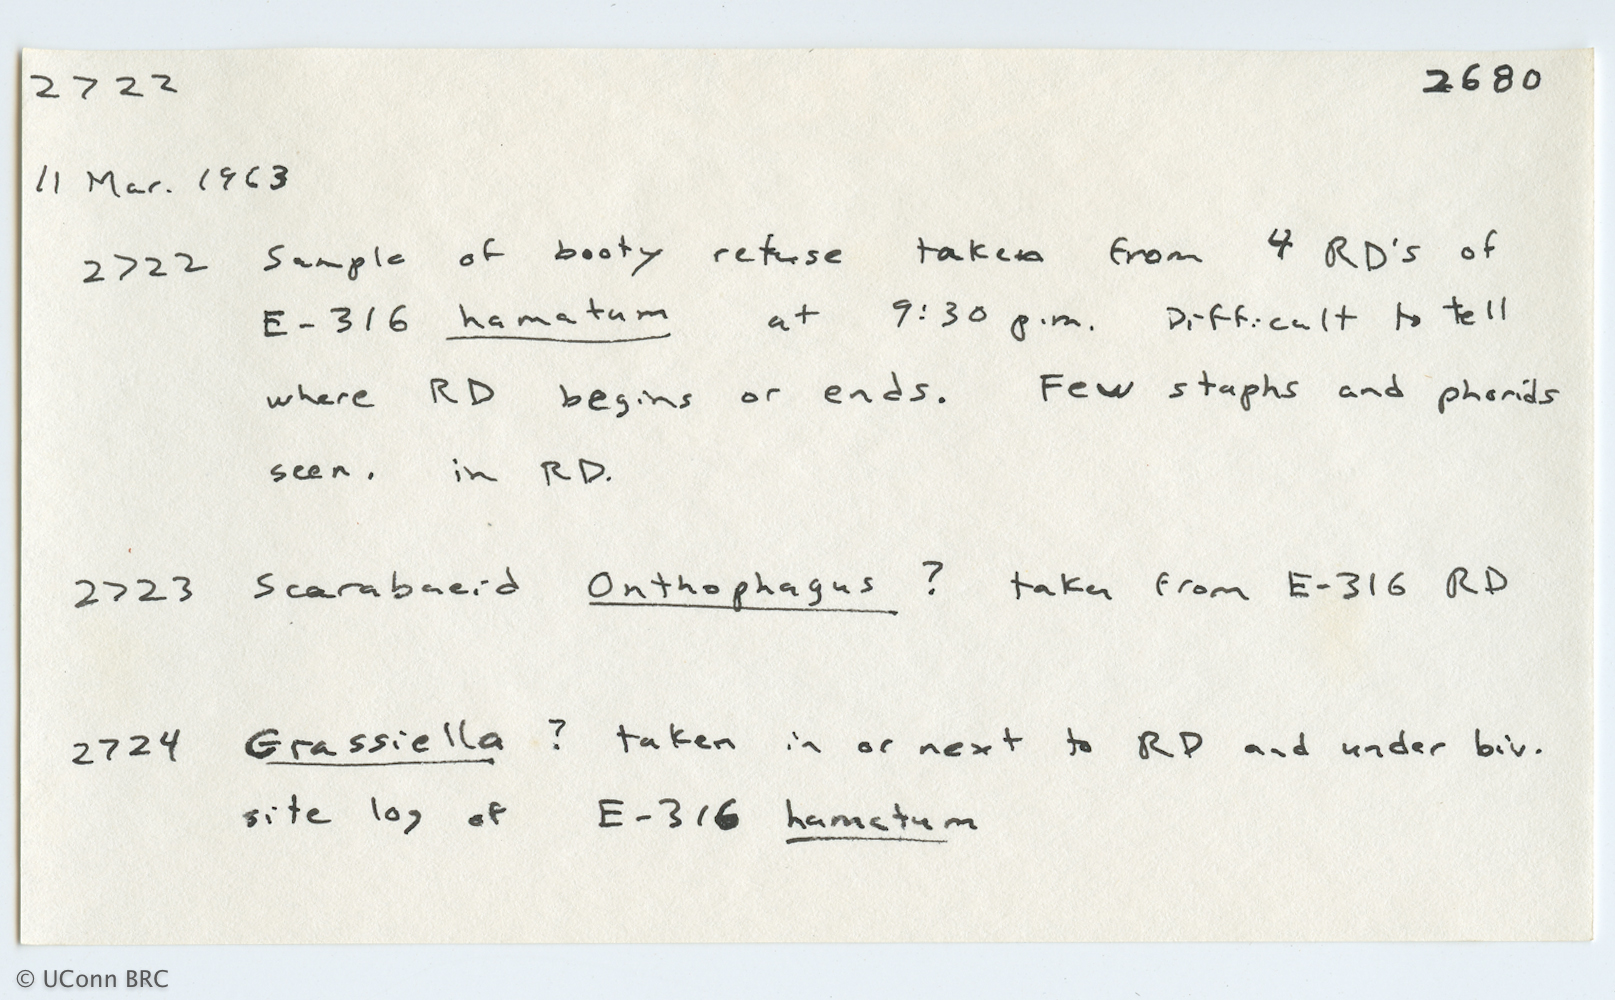 2722 2680
11 Mar. 1963
2722 Sample of booty refuse taken from 4 RD's of
E-316 hamatum at 9:30 p.m. Difficult to tell
where RD begins or ends. Few staphs and phorids
seen. in RD.
2723 Scarabaeid Onthophagus ? taken from E-316 RD
2724 Grassiella ? taken in or next to RD and under biv.
site log of E-316 hamatum
© UConn BRC